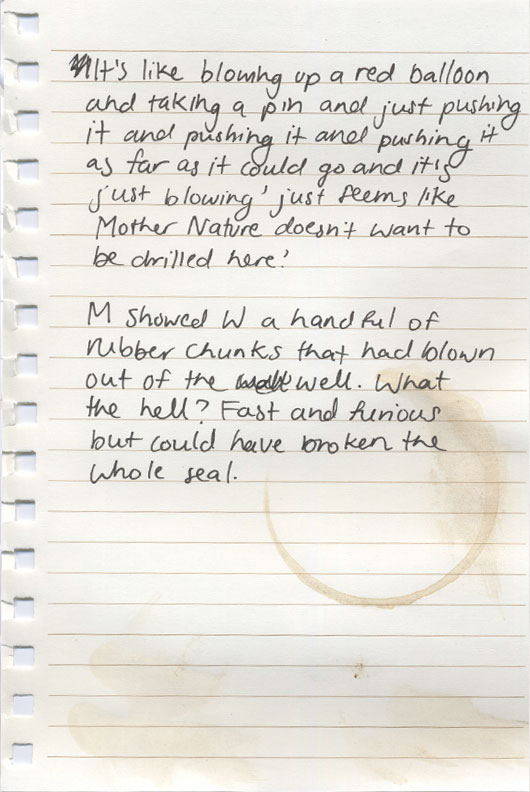 It's like blowing up a red balloon
and taking a pin and just pushing
it and pushing it and pushing it
as far as it could go and it's
just blowing' just seems like
Mother Nature doesn't want to
be drilled here'
M showed W a handful of
rubber chunks that had blown
out of the well. What
the hell? Fast and furious
but could have broken the
whole seal.